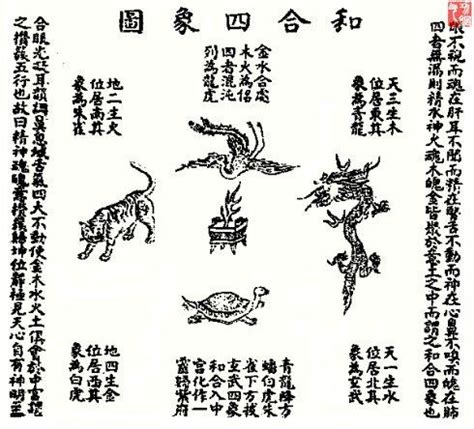 和合四象圖
眼不視而魂在肝耳不聞而精在腎舌不動而神在心鼻不嗅而魄在肺
四者無漏則精水神火魂木魄金皆聚於意土之中而謂之和合四象也
天三生木
位居東真
象為青龍
金水合處
木火為侶
四者混沌
列為龍虎
地二生火
位居南真
象為朱雀
天一生水
位居北真
象為玄武
青龍降方
蟠伯虎朱
雀下方被
玄武四象
和合入中
宮化作一
靈歸紫府
地四生金
位居西真
象為白虎
合眼光凝耳韻調鼻息緘舌氣四大不動使金木水火土俱會於中宮謂
之攢簇五行也故曰精神魂魄意攢簇歸坤位靜極見天心自有神明至